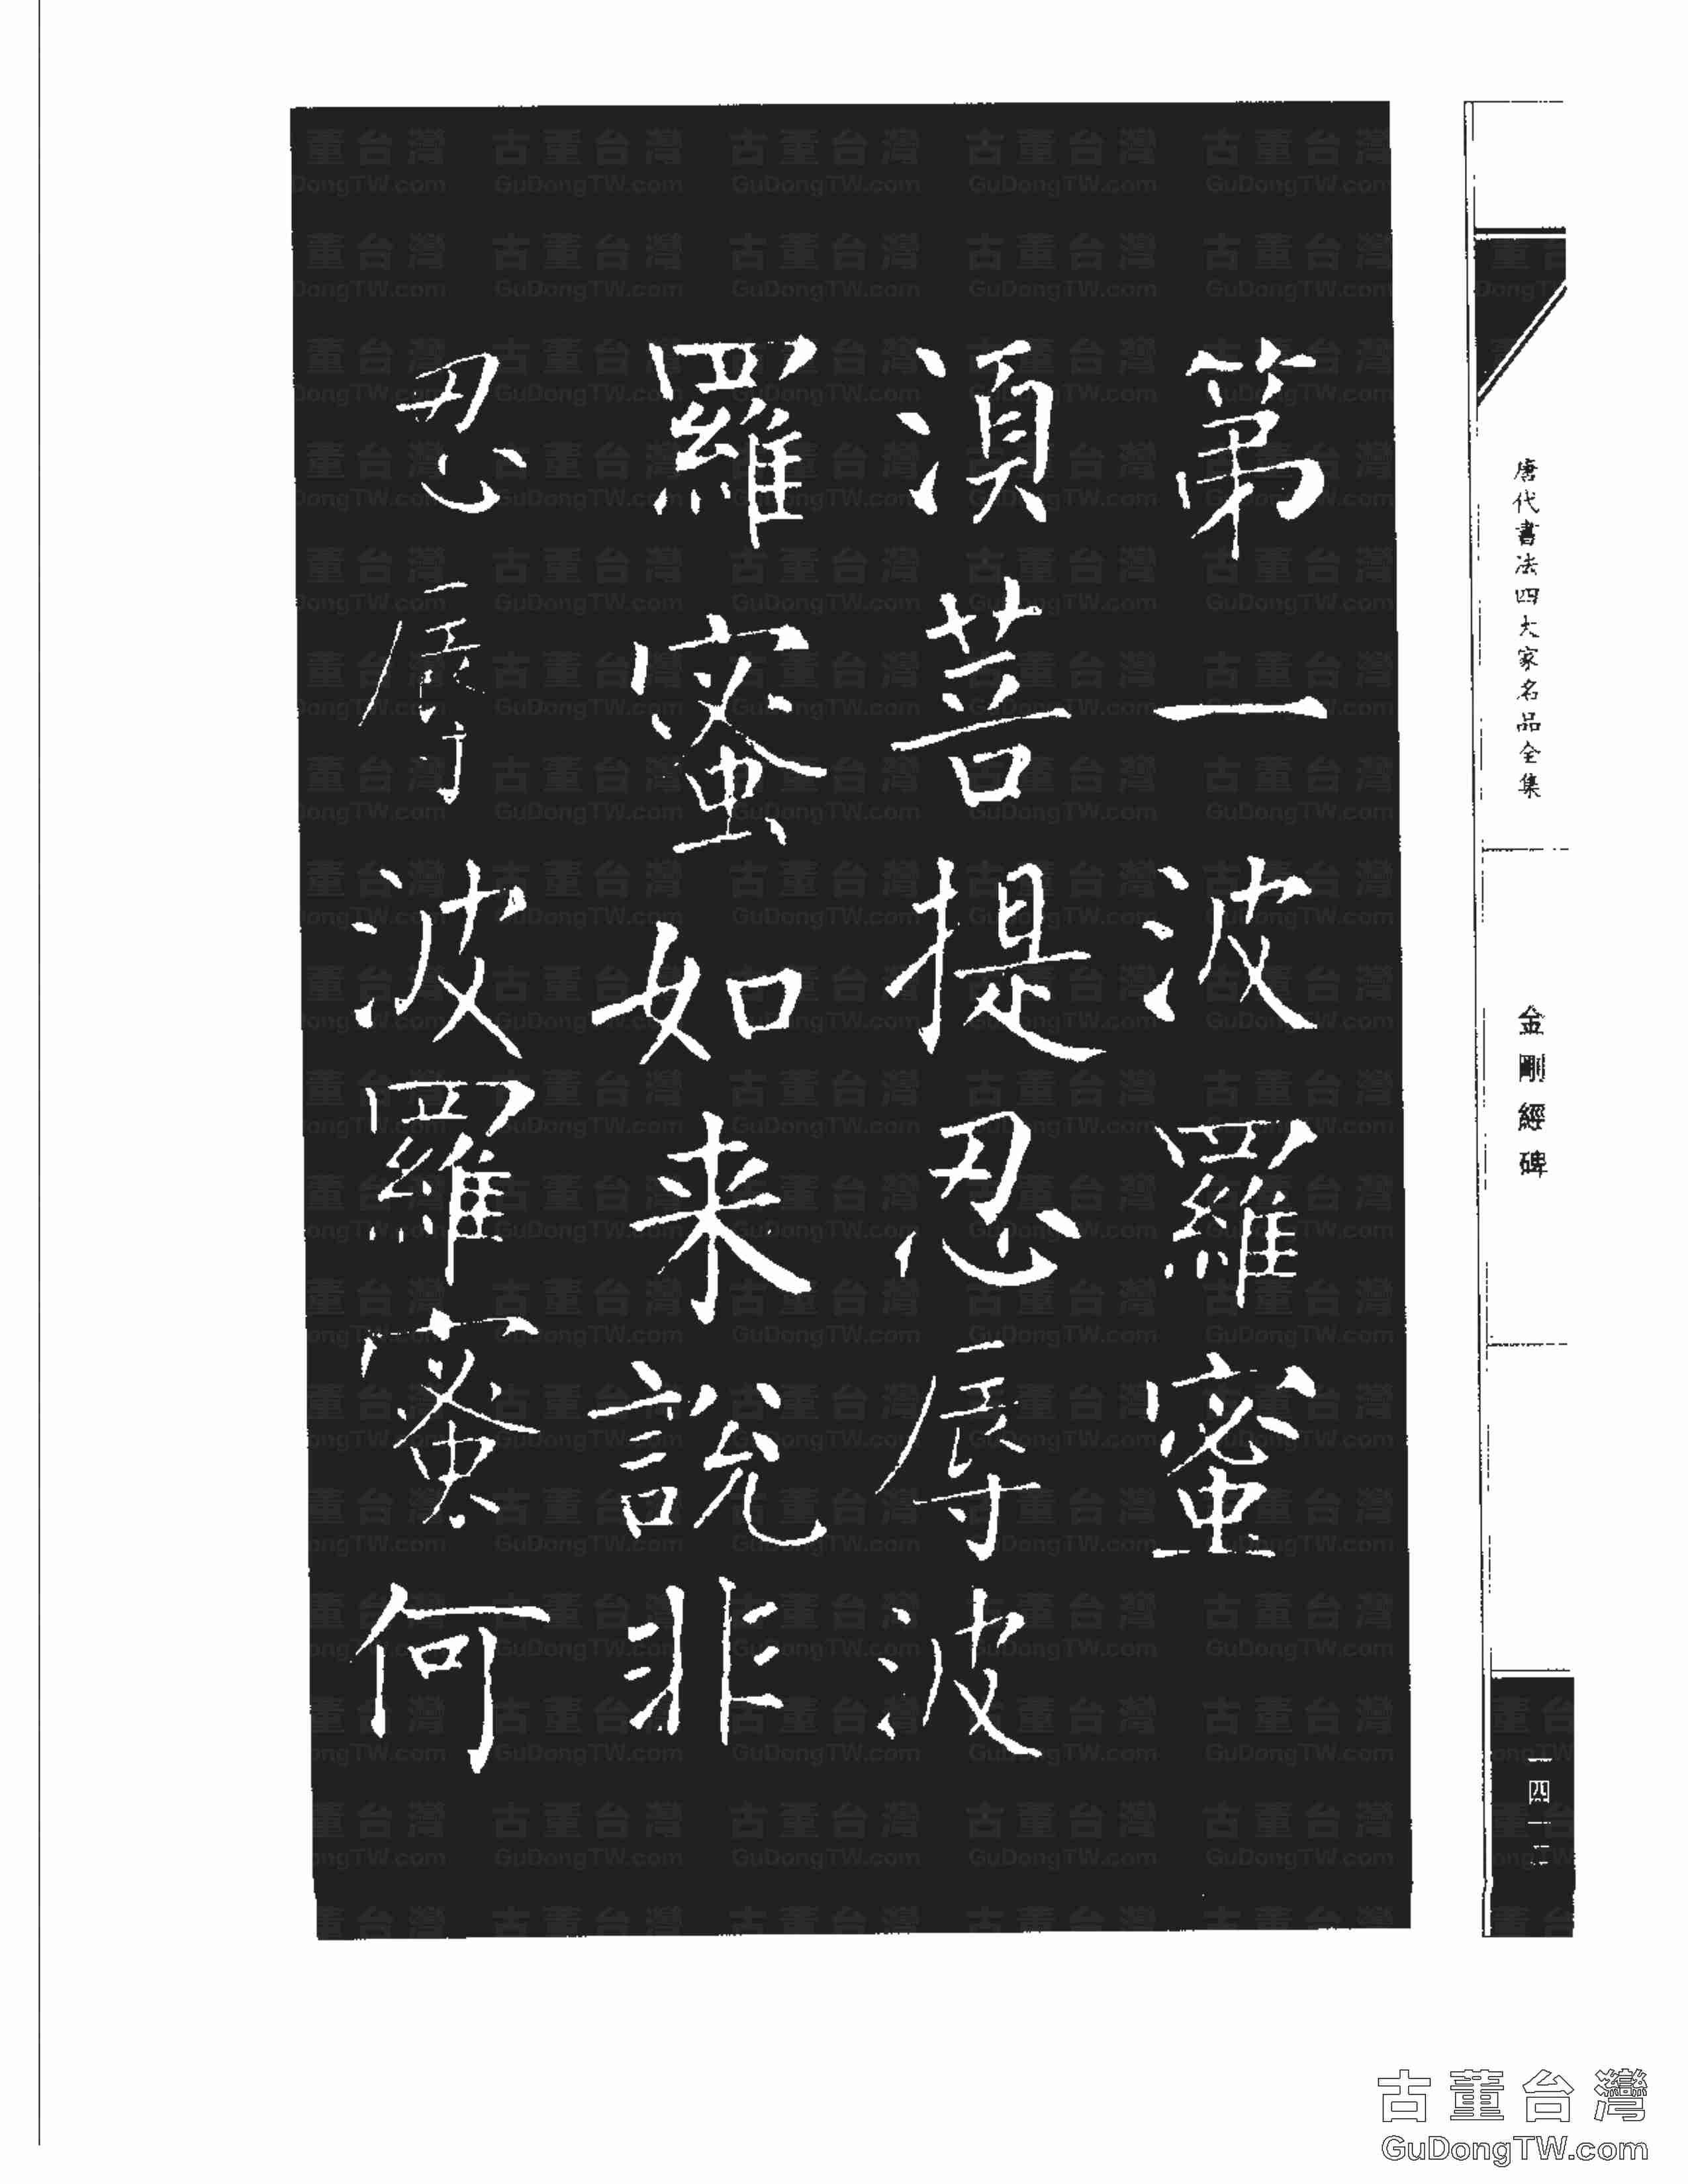 唐代書法四大家名品全集
金剛經碑
第一波羅蜜
湏菩提忍辱波
羅蜜如来說非
忍辱波羅蜜何
古董台灣
GuDongTW.com